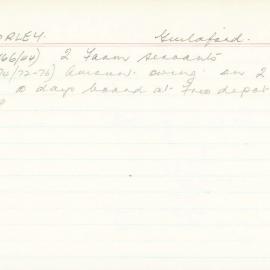 ORLEY. Guildford.
66/64) 2 Farm servants
74/72-76) Amount owing on 2
10 days board at Free depot